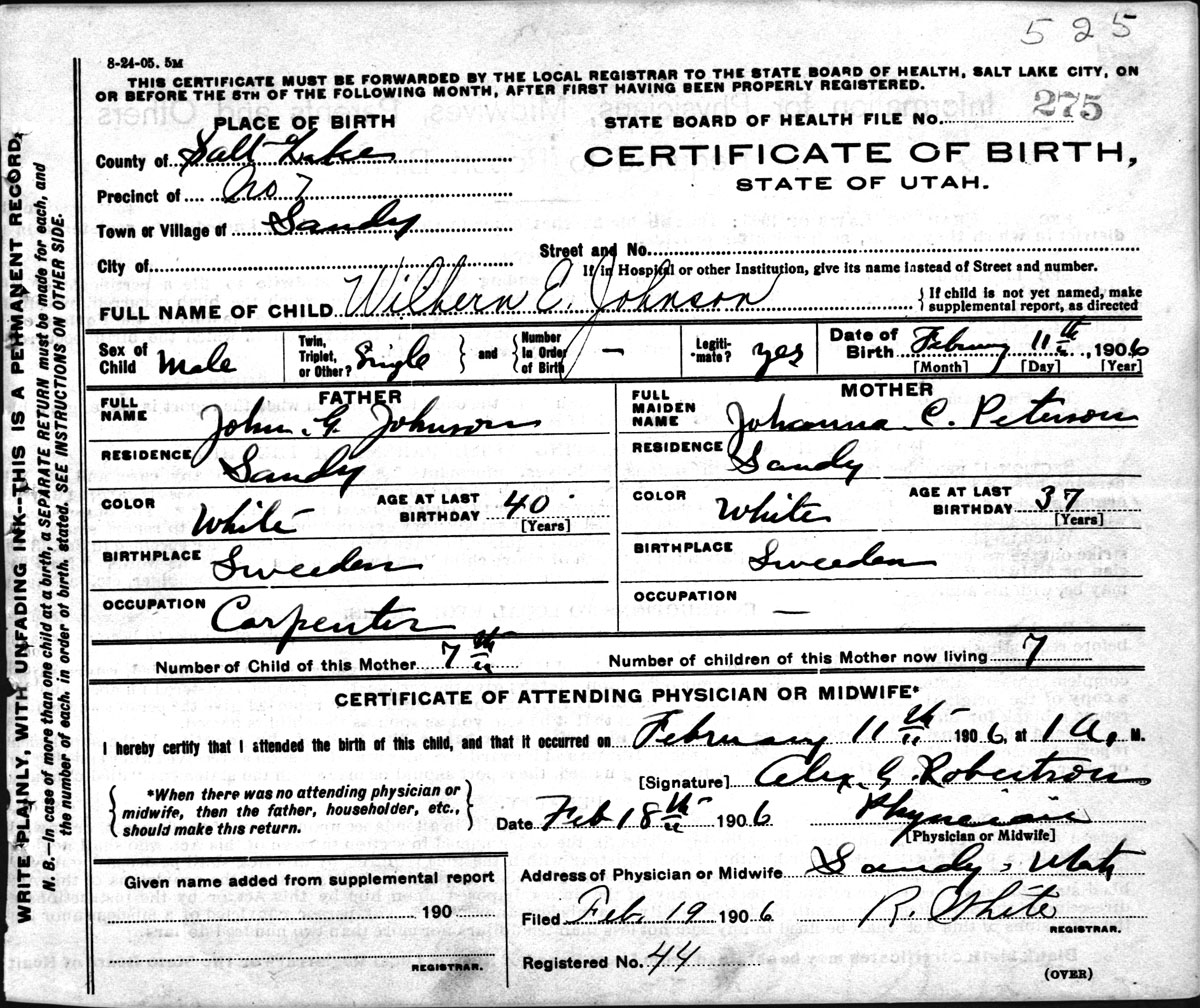 525
8-24-05. 5M
THIS CERTIFICATE MUST BE FORWARDED BY THE LOCAL REGISTRAR TO THE STATE BOARD OF HEALTH, SALT LAKE CITY, ON
OR BEFORE THE 5TH OF THE FOLLOWING MONTH, AFTER FIRST HAVING BEEN PROPERLY REGISTERED.
PLACE OF BIRTH
STATE BOARD OF HEALTH FILE No. 275
County of Salt Lake
CERTIFICATE OF BIRTH,
Precinct of No 7
STATE OF UTAH.
Town or Village of Sandy
Street and No.
City of
If in Hospital or other Institution, give its name instead of Street and number.
FULL NAME OF CHILD Wilhern E. Johnson
{ If child is not yet named, make supplemental report, as directed
Sex of Child Male
Twin, Triplet, or Other? Single } and { Number in Order of Birth —
Legiti-mate? yes
Date of Birth February 11th, 1906
[Month] [Day] [Year]
FATHER
FULL NAME John G. Johnson
RESIDENCE Sandy
COLOR White
AGE AT LAST BIRTHDAY 40
[Years]
BIRTHPLACE Sweeden
OCCUPATION Carpenter
MOTHER
FULL MAIDEN NAME Johanna C. Peterson
RESIDENCE Sandy
COLOR White
AGE AT LAST BIRTHDAY 37
[Years]
BIRTHPLACE Sweeden
OCCUPATION —
Number of Child of this Mother 7th
Number of children of this Mother now living 7
CERTIFICATE OF ATTENDING PHYSICIAN OR MIDWIFE*
I hereby certify that I attended the birth of this child, and that it occurred on February 11th 1906, at 1 A. M.
[Signature] Alex G. Robertson
{ *When there was no attending physician or
midwife, then the father, householder, etc.,
should make this return. }
Date Feb 18th 1906
Physician
[Physician or Midwife]
Given name added from supplemental report
190
REGISTRAR.
Address of Physician or Midwife Sandy, Utah
Filed Feb. 19 1906
R. White
REGISTRAR.
Registered No. 44
(OVER)
WRITE PLAINLY, WITH UNFADING INK—THIS IS A PERMANENT RECORD.
N. B.—In case of more than one child at a birth, a SEPARATE RETURN must be made for each, and
the number of each, in order of birth, stated. SEE INSTRUCTIONS ON OTHER SIDE.